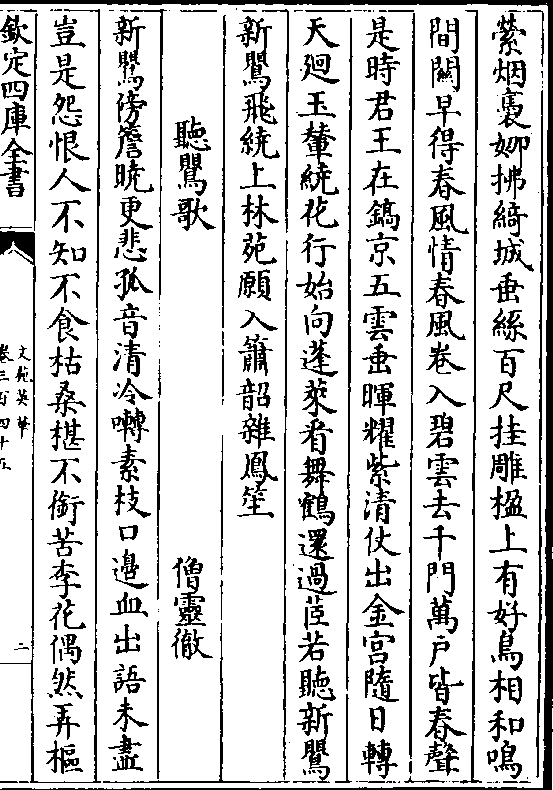 縈烟裊娜拂綺城垂絲百尺挂雕楹上有好鳥相和鳴
間關早得春風情春風卷入碧雲去千門萬户皆春聲
是時君王在鎬京五雲垂暉耀紫清仗出金宫隨日轉
天廻玉輦繞花行始向蓬萊看舞鶴還過茝若聽新鸎
新鸎飛繞上林苑願入簫韶雜鳳笙
聽鸎歌
僧靈徹
新鸎傍簷曉更悲孤音清冷囀素枝口邉血出語未盡
豈是怨恨人不知不食枯桑椹不銜苦李花偶然弄樞
欽定四庫全書
文苑英華
卷三百四十五
二